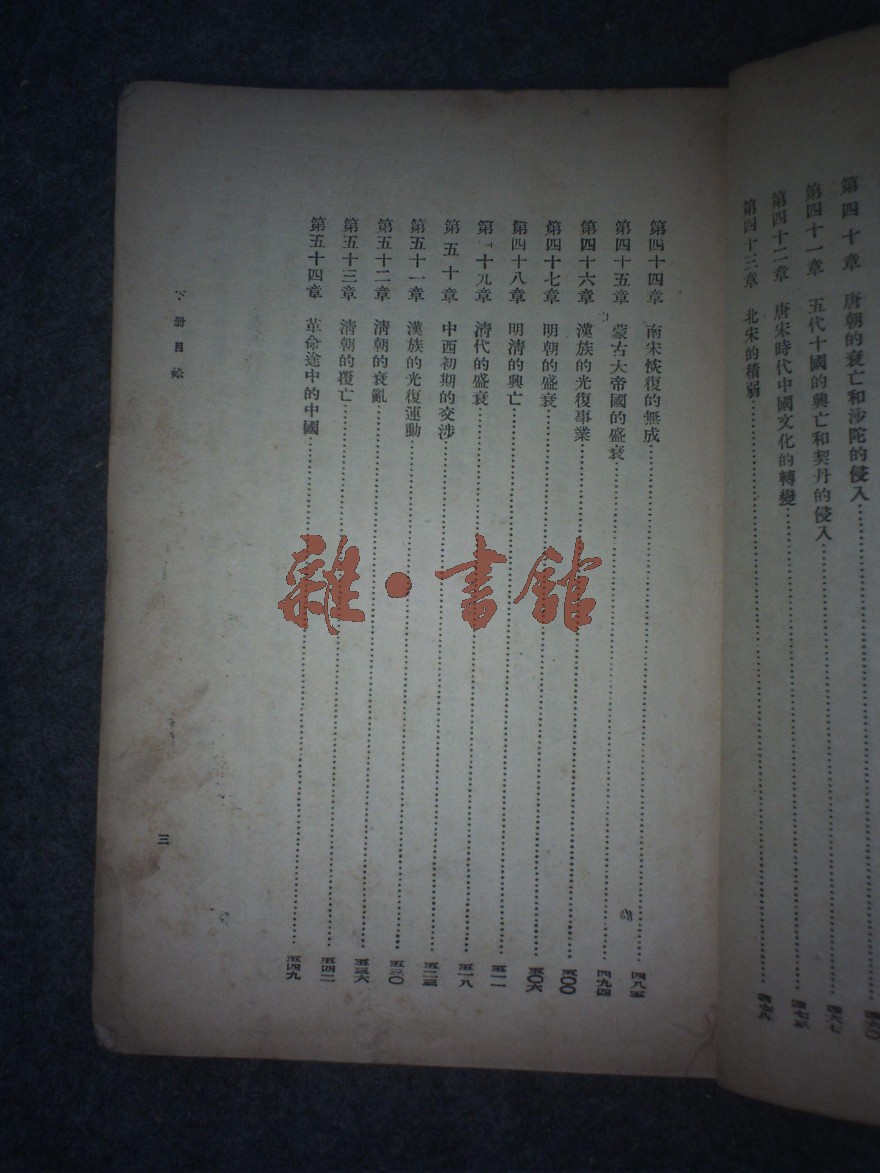 第四十章　唐朝的衰亡和沙陀的侵入
第四十一章　五代十國的興亡和契丹的侵入……四六七
第四十二章　唐宋時代中國文化的轉變……四七三
第四十三章　北宋的積弱……四七八
第四十四章　南宋恢復的無成……四八五
第四十五章　蒙古大帝國的盛衰……四九四
第四十六章　漢族的光復事業……五〇〇
第四十七章　明朝的盛衰……五〇六
第四十八章　明清的興亡……五一一
第 十九章　清代的盛衰……五一八
第五十章　中西初期的交涉……五二三
第五十一章　漢族的光復運動……五三〇
第五十二章　清朝的衰亂……五三六
第五十三章　清朝的覆亡……五四二
第五十四章　革命途中的中國……五四九
下冊目錄
三
雜·書館